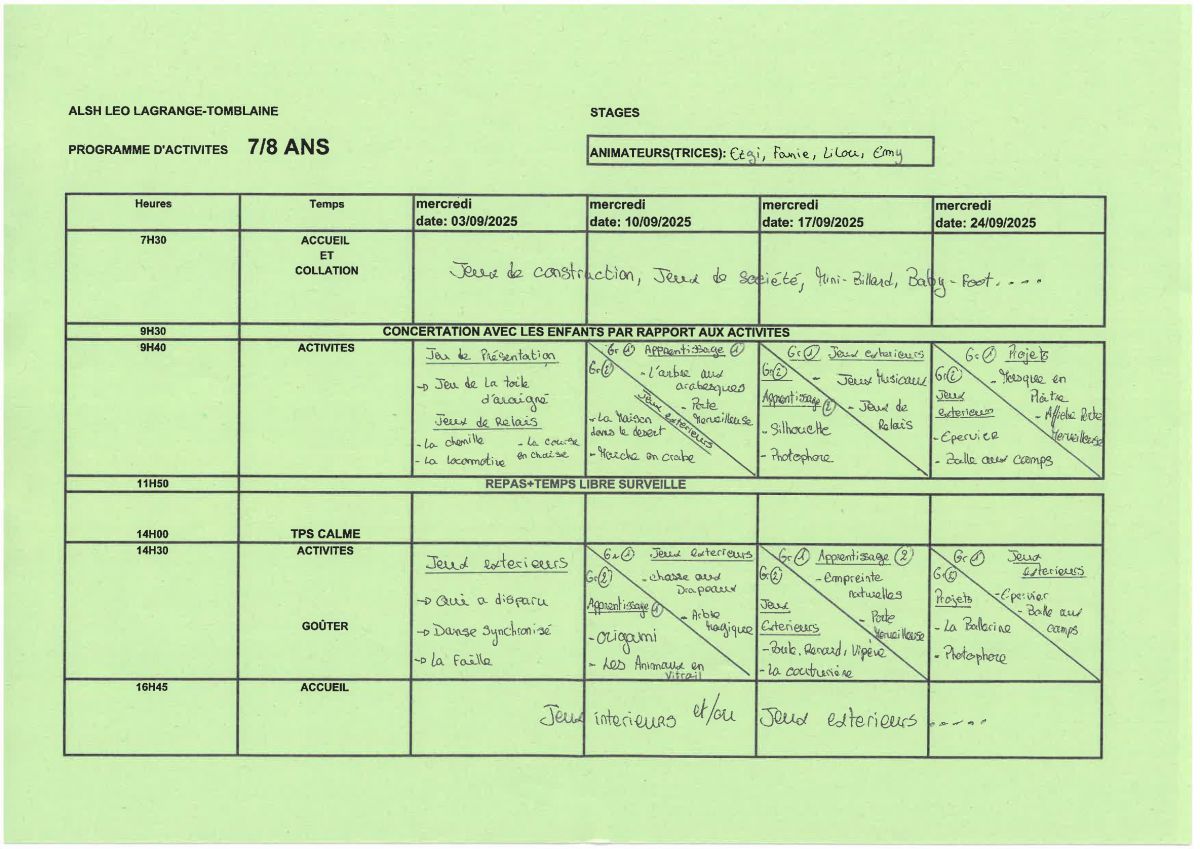 ALSH LEO LAGRANGE-TOMBLAINE
STAGES
PROGRAMME D'ACTIVITES 7/8 ANS
ANIMATEURS(TRICES): Ezgi, Fanie, Lilou, Emy
Heures
Temps
mercredi
date: 03/09/2025
mercredi
date: 10/09/2025
mercredi
date: 17/09/2025
mercredi
date: 24/09/2025
7H30
ACCUEIL
ET
COLLATION
Jeux de construction, Jeux de société, Mini-Billard, Baby-Foot....
9H30
CONCERTATION AVEC LES ENFANTS PAR RAPPORT AUX ACTIVITES
9H40
ACTIVITES
Jeu de Présentation
→ Jeu de la toile
d'araigné
Jeux de Relais
- La chenille
- La course
en chaise
- La locomotive
Gr ① Apprentissage ①
- L'arbre aux
arabesques
- Porte
Merveilleuse
Gr ②
Jeux extérieurs
- La Maison
dans le desert
- Marche en crabe
Gr ① Jeux exterieurs
- Jeux Musicaux
- Jeux de
Relais
Gr ②
Apprentissage ②
- Silhouette
- Photophore
Gr ① Projets
- Masque en
Plâtre
- Affiche Porte
Merveilleuse
Gr ②
Jeux
exterieurs
- Epervier
- Balle aux camps
11H50
REPAS+TEMPS LIBRE SURVEILLE
14H00
TPS CALME
14H30
ACTIVITES
GOÛTER
Jeux exterieurs
→ Qui a disparu
→ Danse synchronisé
→ La Faille
Gr ① Jeux exterieurs
- chasse aux
Drapeaux
- Arbre
magique
Gr ②
Apprentissage ①
- origami
- Les Animaux en
Vitrail
Gr ① Apprentissage ②
- Empreinte
naturelles
- Porte
Merveilleuse
Gr ②
Jeux
Exterieurs
- Poule, Renard, Vipère
- La couturière
Gr ① Jeux
exterieurs
- Epervier
- Balle aux
camps
Gr ②
Projets
- La Ballerine
- Photophore
16H45
ACCUEIL
Jeux interieurs et/ou Jeux exterieurs .....